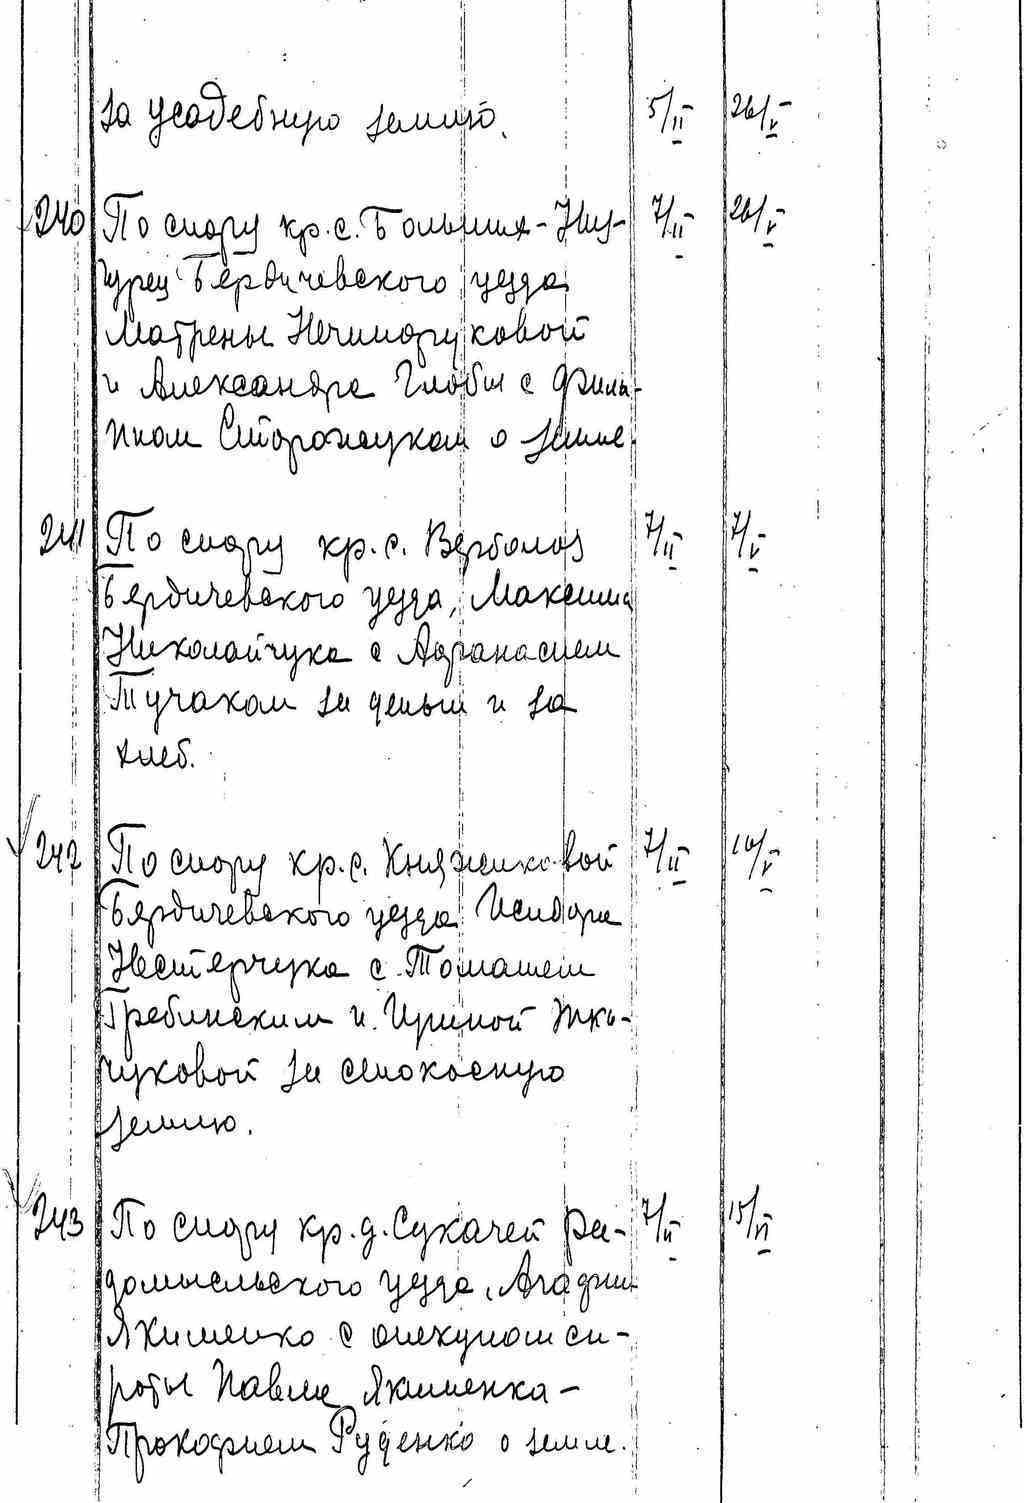 за усадебную землю. 5/II 26/V
240 По спору кр. с. Большия-Низ- 7/II 26/V
гурец Бердичевского уезда
Матрены Нечипоруковой
и Александра Глобы с Фили-
пком Сторожуком о земле.
241 По спору кр. с. Верболоз 7/II 7/V
Бердичевского уезда, Максима
Николайчука с Афанасием
Тучаком за деньги и за
хлеб.
242 По спору кр. с. Княжиковой 7/II 10/V
Бердичевского уезда Исидора
Нестерчука с Томашем
Гребинским и Ириной Тка-
чуковой за сенокосную
землю.
243 По спору кр. д. Сукачей Ра- 7/II 15/VI
домысльского уезда, Агафии
Якименко с опекуном си-
роты Павла Якименка-
Прокофием Руденко о земле.